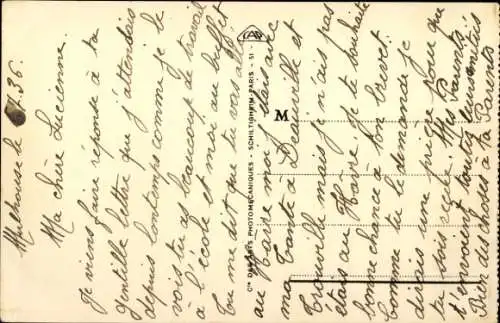 Mulhouse le 36.
Ma chère Lucienne.
Je viens faire réponse à ta
gentille lettre que j'attendais
depuis longtemps comme je le
vois tu as beaucoup de travail
à l'école et moi, au buffet
Tu me dit que tu vas
au Havre moi j'étais avec
ma Tante à Deauville et
Trouville mais je n'ais pas
étais au Havre je te souhaite
bonne chance à ton brevet.
Comme tu le demande je
dirais une prière pour que
tu sois reçue. Mes Parents
t'envoient toutes leurs amitiés
Bien des choses à ta Parents
M
Cie DES ARTS PHOTOMECANIQUES - SCHILTIGHEIM-PARIS - 51